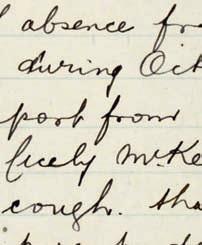 absence fr
during Oct
port from
Cicely McKe
cough. tha